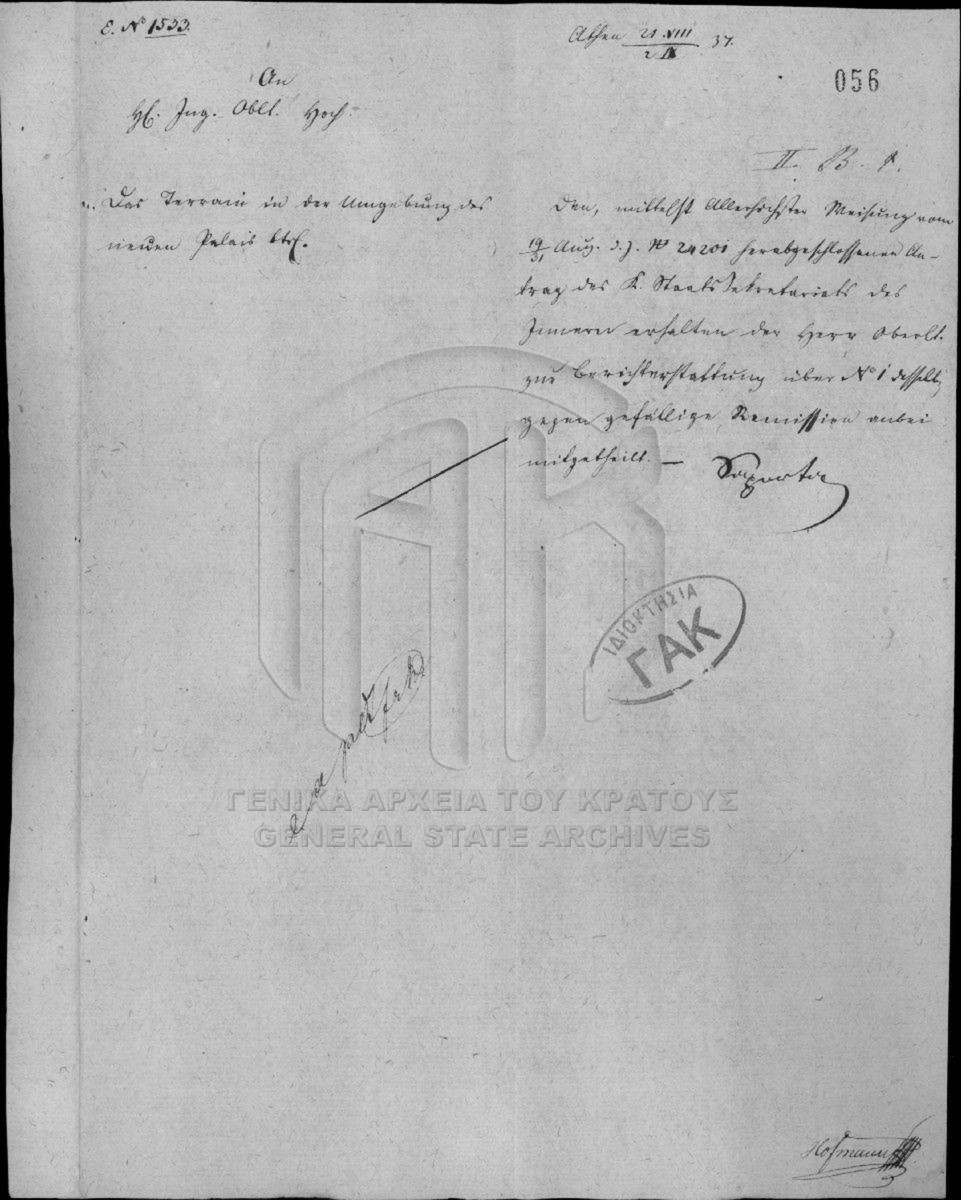 E. No 1533.
Athen 21. VIII / 2 IX 37.
056
An
H. Ing. Oblt. Hoch
II. B.
Das Terrain in der Umgebung des
neuen Palais btrf.
Den, mittelst Allerhöchster Weisung vom
19/31 Aug. d. J. No 24201 herabgeschlossenen An-
trag des K. Staatssekretariats des
Innern erhalten der Herr Oberlt.
zur Berichterstattung über No 1 desselb
gegen gefällige Remission anbei
mitgetheilt. —
Saporta
ΙΔΙΟΚΤΗΣΙΑ
ΓΑΚ
ΓΕΝΙΚΑ ΑΡΧΕΙΑ ΤΟΥ ΚΡΑΤΟΥΣ
GENERAL STATE ARCHIVES
Hofmann